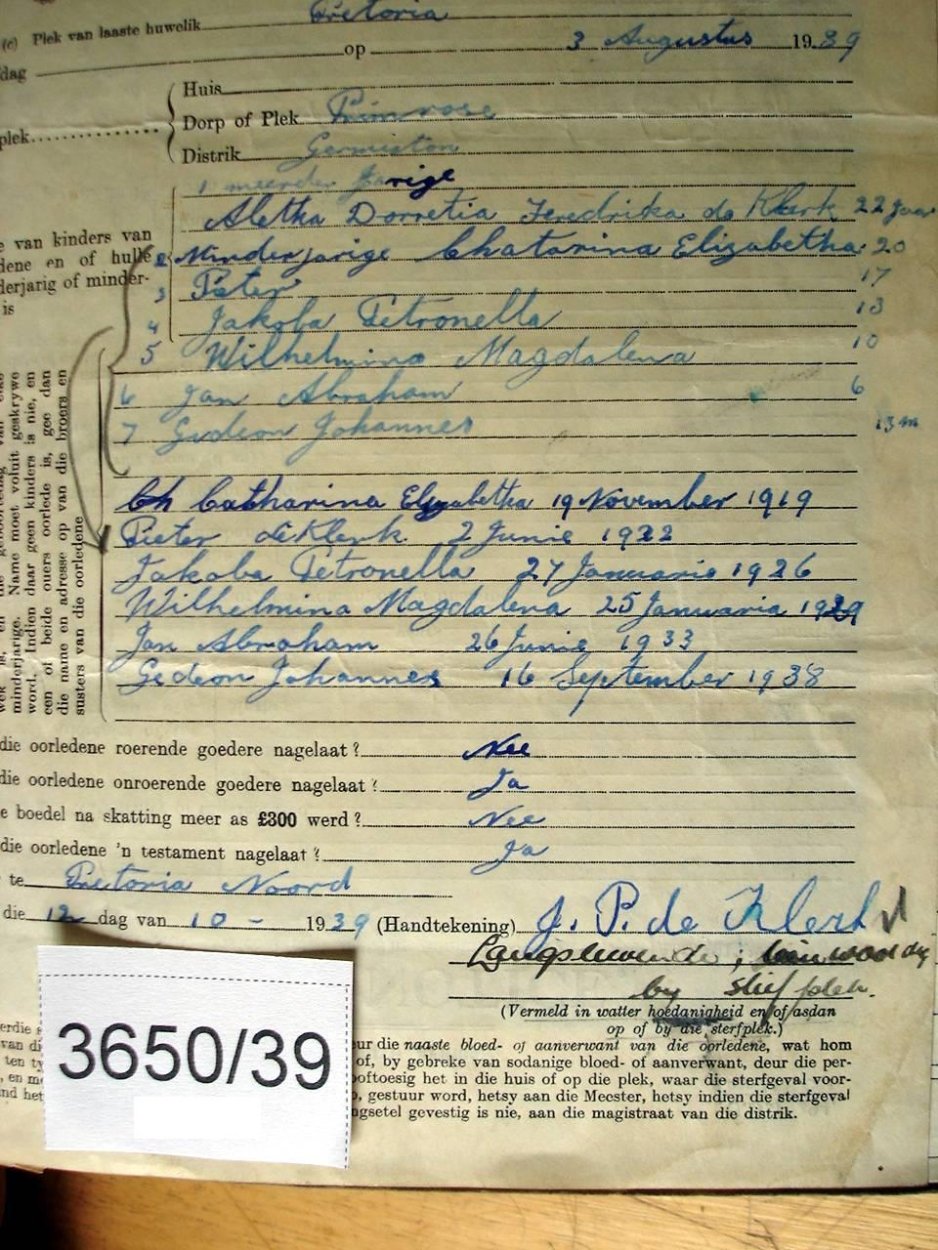 (c) Plek van laaste huwelik Pretoria
dag op 3 Augustus 1939
Huis
plek Dorp of Plek Primrose
Distrik Germiston
1 meerder Jarige
Aletha Dorretia Fredrika de Klerk 22 Jaar
e van kinders van
2 Minderjarige Chatarina Elizabetha 20
dene en of hulle
derjarig of minder-
3 Pieter 17
is
4 Jakoba Petronella 13
5 Wilhelmina Magdalena 10
6 Jan Abraham 6
7 Gideon Johannes 13 m
minderjarige. Name moet voluit geskrywe
word. Indien daar geen kinders is nie, en
een of beide ouers oorlede is, gee dan
die name en adresse op van die broers en
susters van die oorledene
Ch Catharina Elizabetha 19 November 1919
Pieter de Klerk 2 Junie 1922
Jakoba Petronella 27 Januarie 1926
Wilhelmina Magdalena 25 Januaria 1929
Jan Abraham 26 Junie 1933
Gideon Johannes 16 September 1938
die oorledene roerende goedere nagelaat? Nee
die oorledene onroerende goedere nagelaat? Ja
e boedel na skatting meer as £300 werd? Nee
die oorledene 'n testament nagelaat? Ja
te Pretoria Noord
die 12 dag van 10 - 1939 (Handtekening) J. P. de Klerk
Langslewende;
by
(Vermeld in watter hoedanigheid en/of asdan
op of by die sterfplek.)
3650/39
eur die naaste bloed- of aanverwant van die oorledene, wat hom
of, by gebreke van sodanige bloed- of aanverwant, deur die per-
oftoesig het in die huis of op die plek, waar die sterfgeval voor-
, gestuur word, hetsy aan die Meester, hetsy indien die sterfgeval
ngsetel gevestig is nie, aan die magistraat van die distrik.